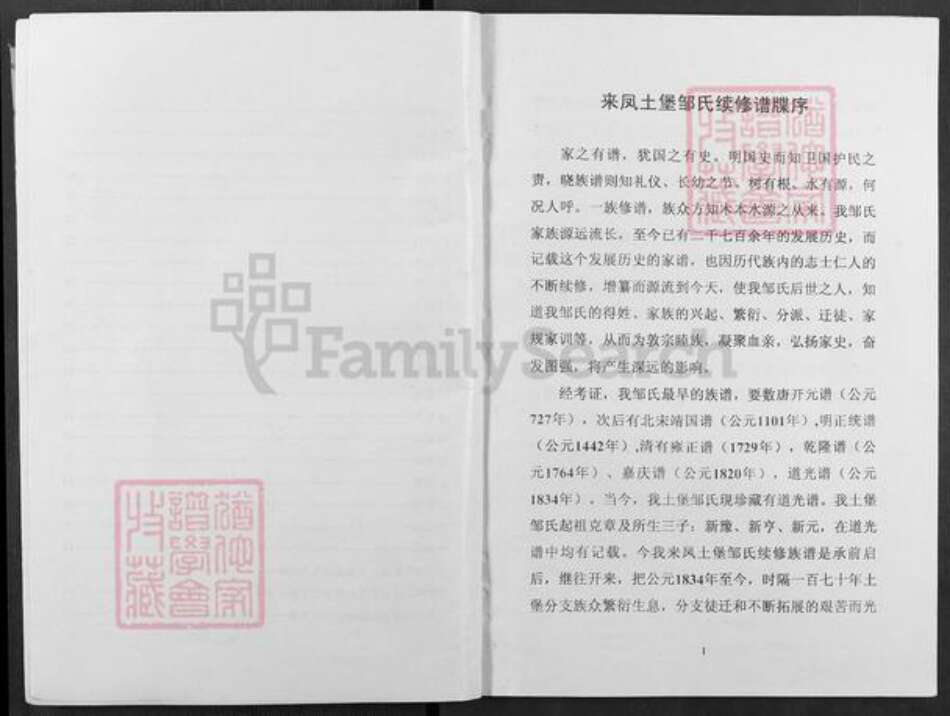 来凤土堡邹氏续修谱牒序
家之有谱，犹国之有史。明国史而知卫国护民之
责，晓族谱则知礼仪、长幼之节。树有根、水有源，何
况人呼。一族修谱，族众方知木本水源之从来。我邹氏
家族源远流长，至今已有二千七百余年的发展历史，而
记载这个发展历史的家谱，也因历代族内的志士仁人的
不断续修，增纂而源流到今天，使我邹氏后世之人，知
道我邹氏的得姓、家族的兴起、繁衍、分派、迁徒、家
规家训等，从而为敦宗睦族，凝聚血亲，弘扬家史，奋
发图强，将产生深远的影响。
经考证，我邹氏最早的族谱，要数唐开元谱（公元
727年），次后有北宋靖国谱（公元1101年）,明正统谱
（公元1442年）,清有雍正谱（1729年），乾隆谱（公
元1764年）、嘉庆谱（公元1820年），道光谱（公元
1834年）。当今，我土堡邹氏现珍藏有道光谱。我土堡
邹氏起祖克章及所生三子：新豫、新亨、新元，在道光
谱中均有记载。今我来凤土堡邹氏续修族谱是承前启
后，继往开来，把公元1834年至今，时隔一百七十年土
堡分支族众繁衍生息，分支徒迁和不断拓展的艰苦而光
1
FamilySearch
譜學會
藏